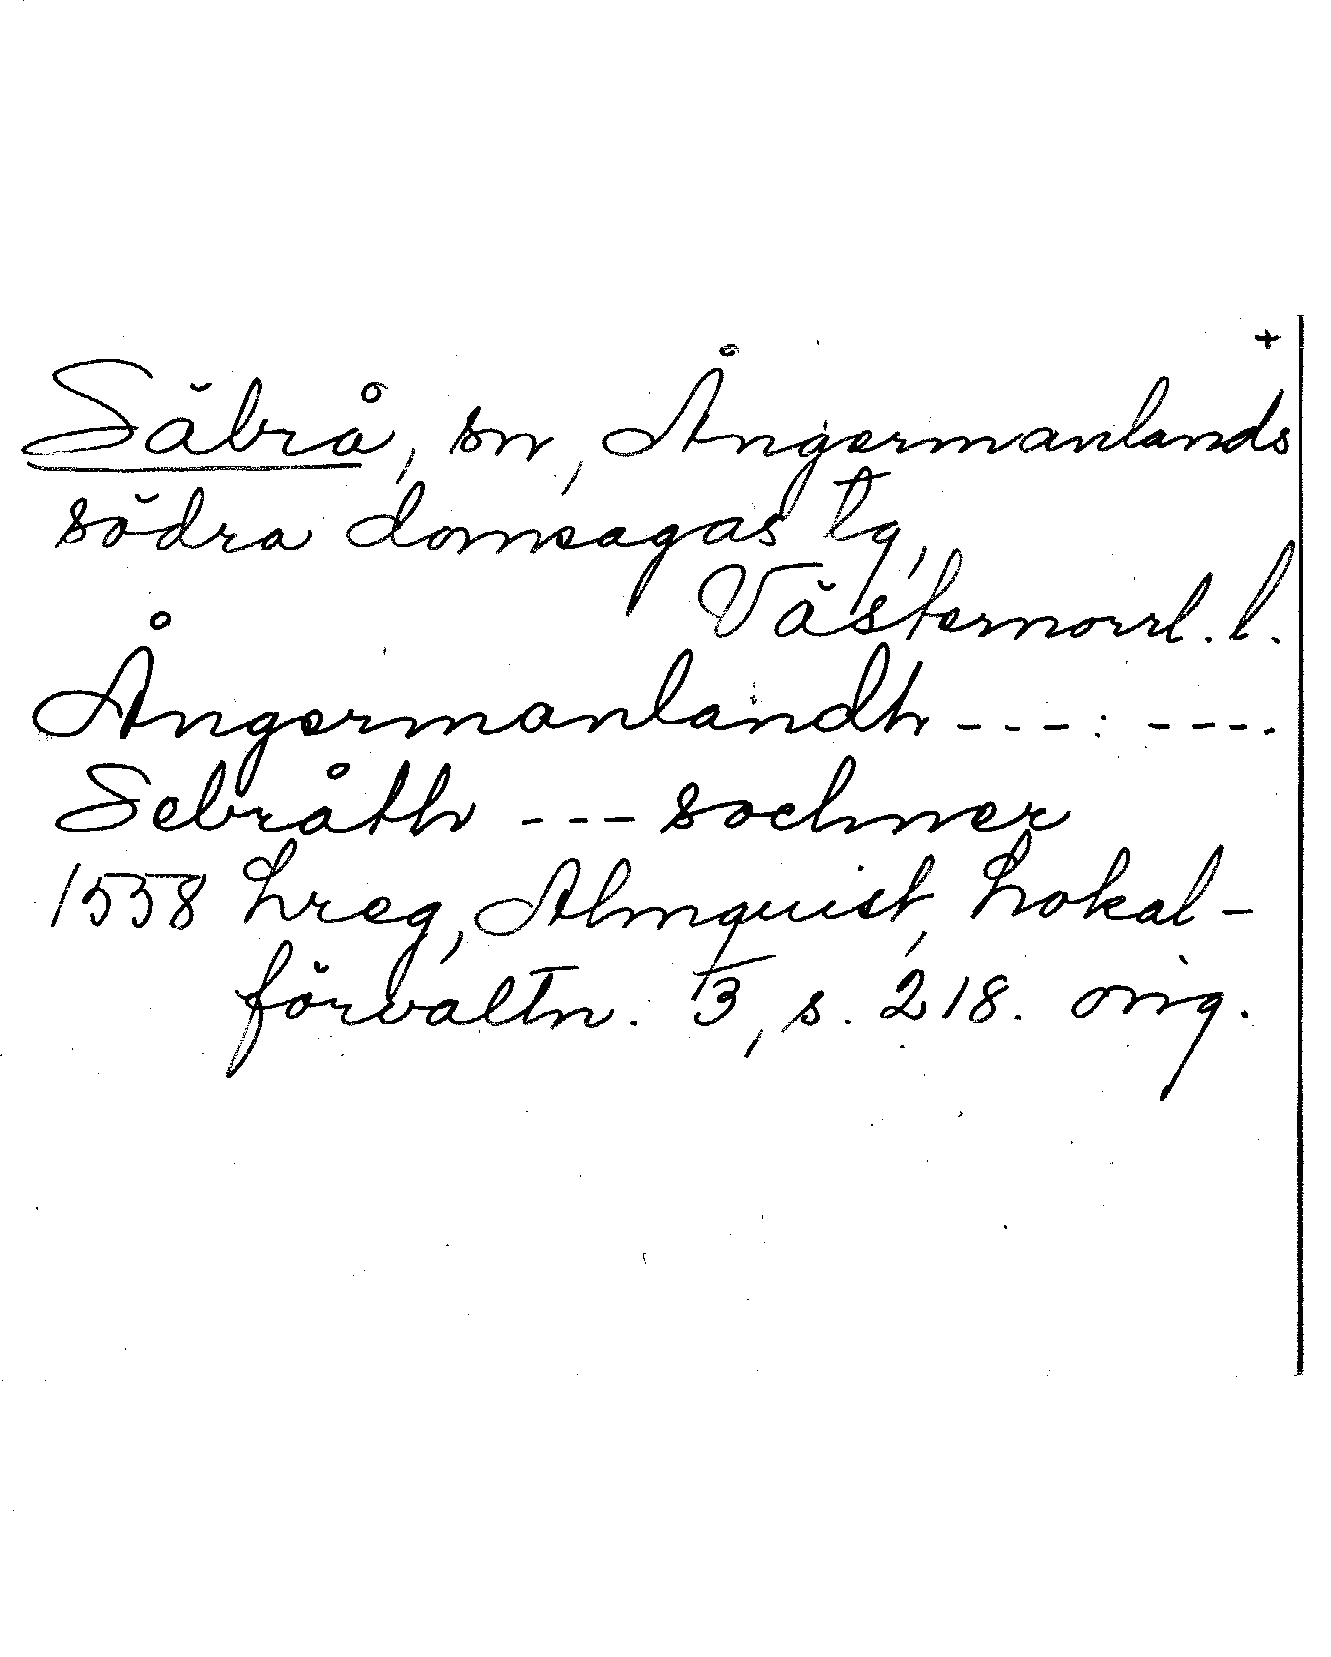 +
Säbrå, sn, Ångermanlands
södra domsagas tg,
Västernorrl. l.
Ångermanlandh - - - : - - - -
Sebråth - - - sochner
1558 Lreg, Almquist, Lokal-
förvaltn. 3, s. 218. orig.